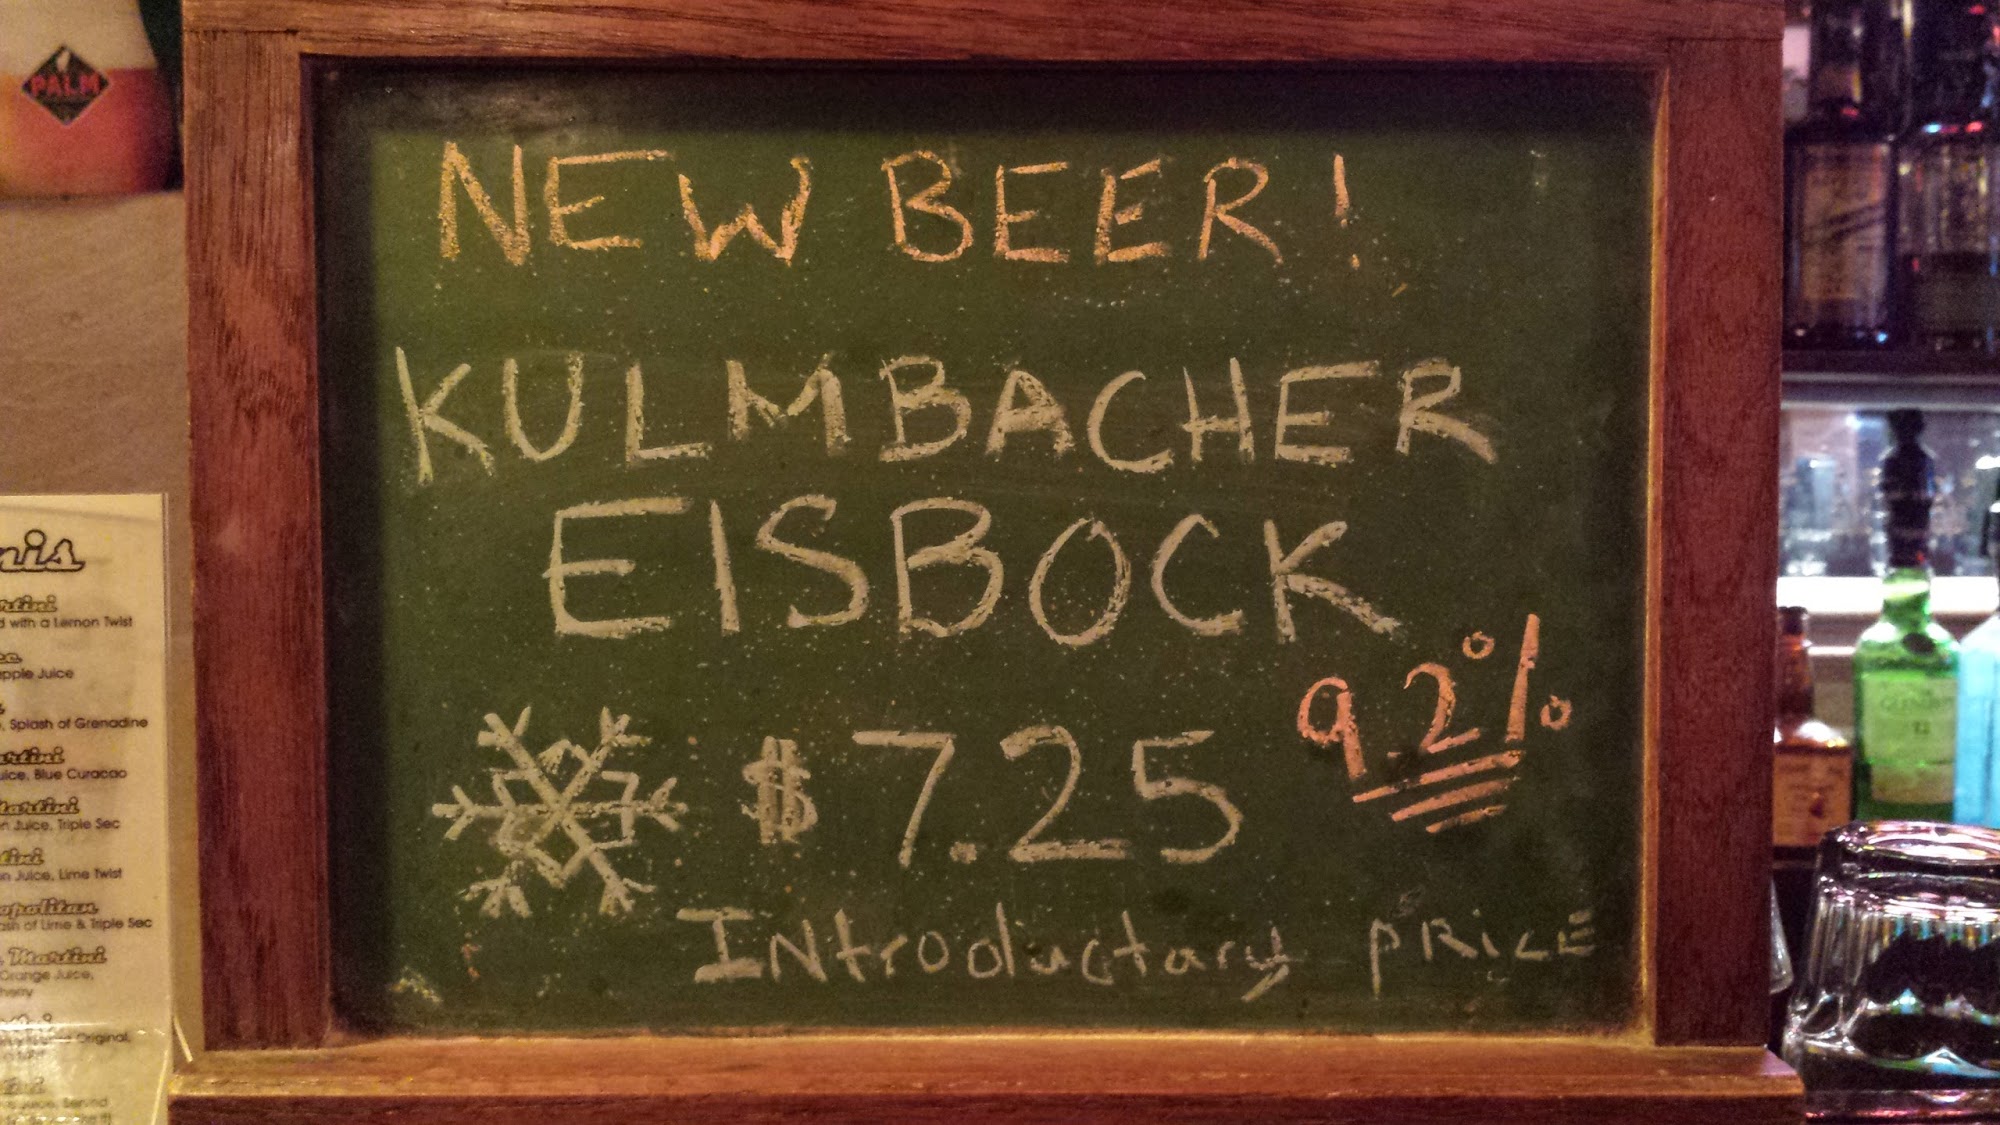 PALM
NEW BEER!
KULMBACHER
EISBOCK
9.2%
$7.25
Introductary PRICE
nis
rtini
d with a Lemon Twist
pple Juice
, Splash of Grenadine
artini
uice, Blue Curacao
artini
n Juice, Triple Sec
tini
n Juice, Lime Twist
opolitan
ash of Lime & Triple Sec
Martini
Orange Juice,
herry
Original,
s Juice, Served